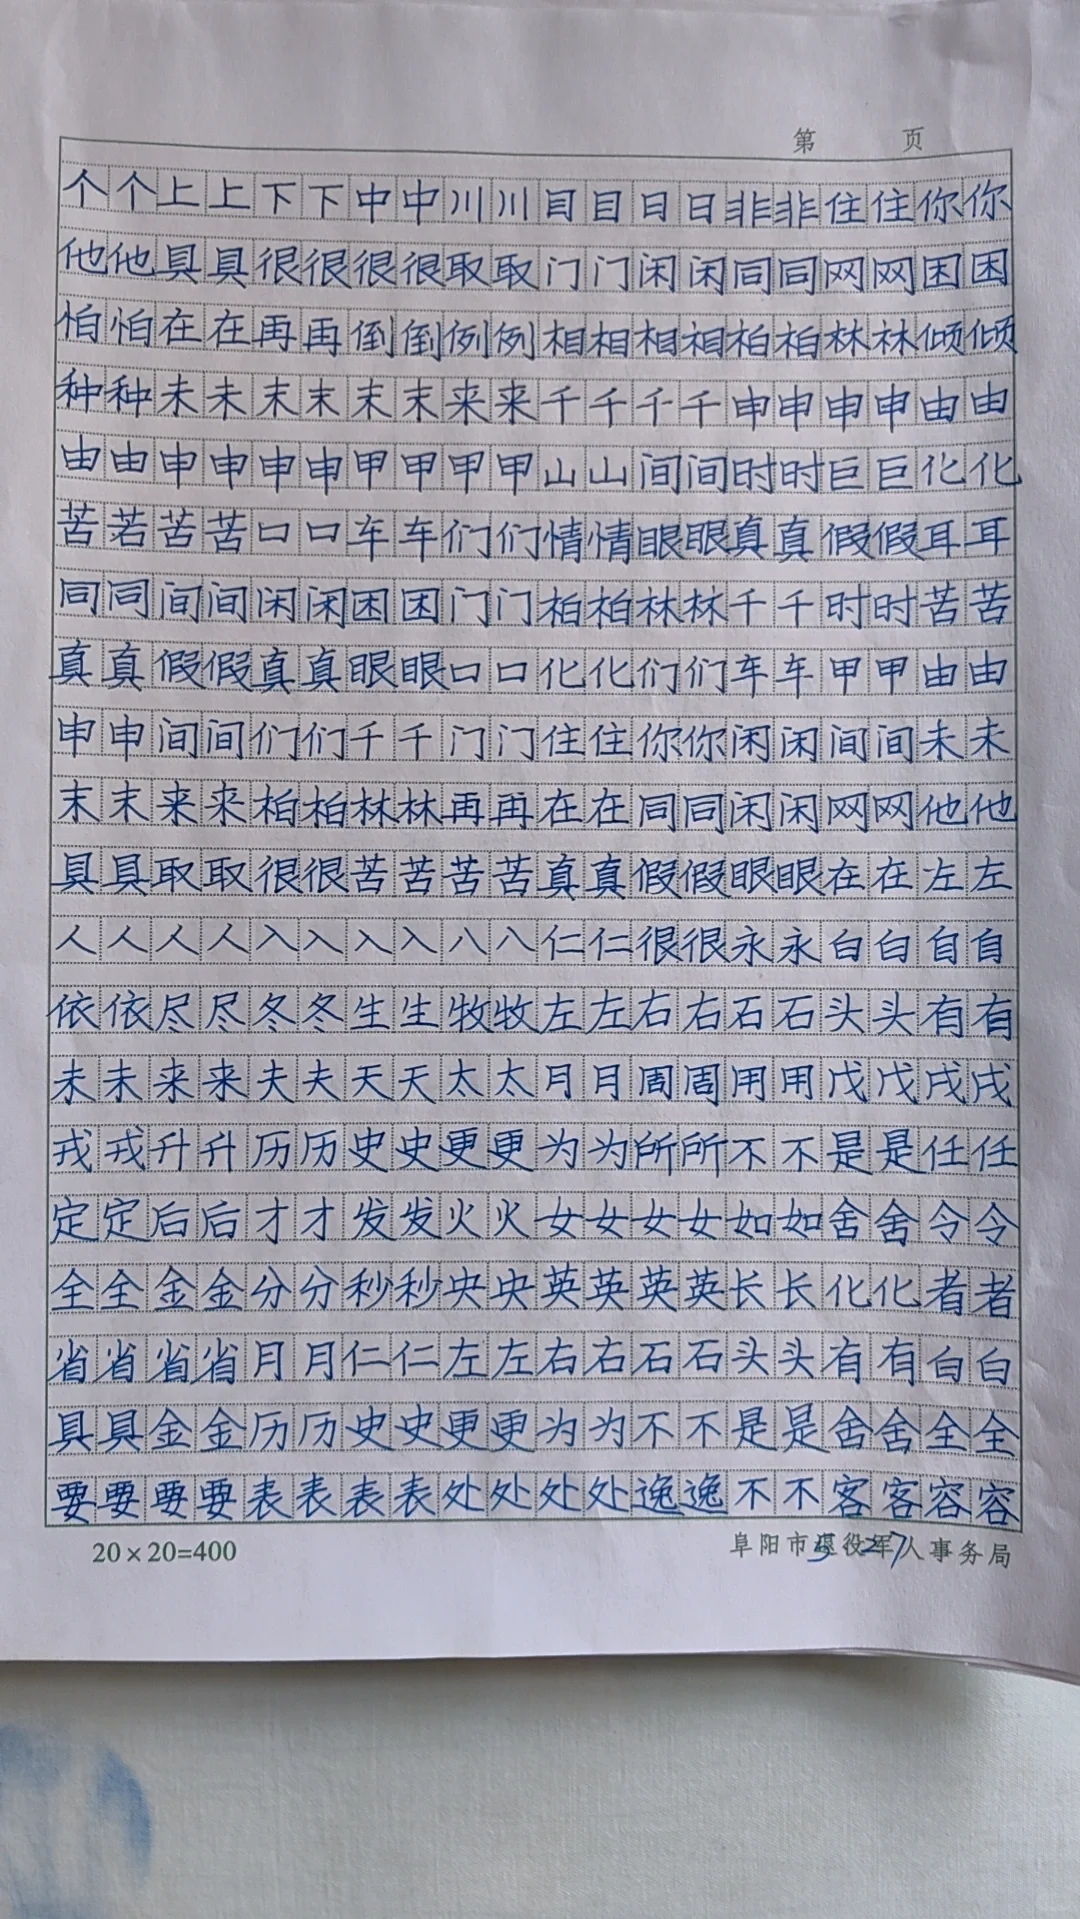 第 页
个个上上下下中中川川目目日日非非住住你你
他他具具很很很很取取门门闲闲同同网网困困
怕怕在在再再倒倒例例相相相相柏柏林林倾倾
种种未未末末末末来来千千千千申申申申由由
由由申申申申甲甲甲甲山山间间时时巨巨化化
苦苦苦苦口口车车们们情情眼眼真真假假耳耳
同同间间闲闲困困门门柏柏林林千千时时苦苦
真真假假真真眼眼口口化化们们车车甲甲由由
申申间间们们千千门门住住你你闲闲间间未未
末末来来柏柏林林再再在在同同闲闲网网他他
具具取取很很苦苦苦苦真真假假眼眼在在左左
人人人人入入入入八八仁仁很很永永白白自自
依依尽尽冬冬生生牧牧左左右右石石头头有有
未未来来夫夫天天太太月月周周用用戊戊戌戌
戎戎升升历历史史更更为为所所不不是是任任
定定后后才才发发火火女女女女如如舍舍令令
全全金金分分秒秒央央英英英英长长化化者者
省省省省月月仁仁左左右右石石头头有有白白
具具金金历历史史更更为为不不是是舍舍全全
要要要要表表表表处处处处逸逸不不客客容容
20×20=400 阜阳市退役军人事务局
5 27